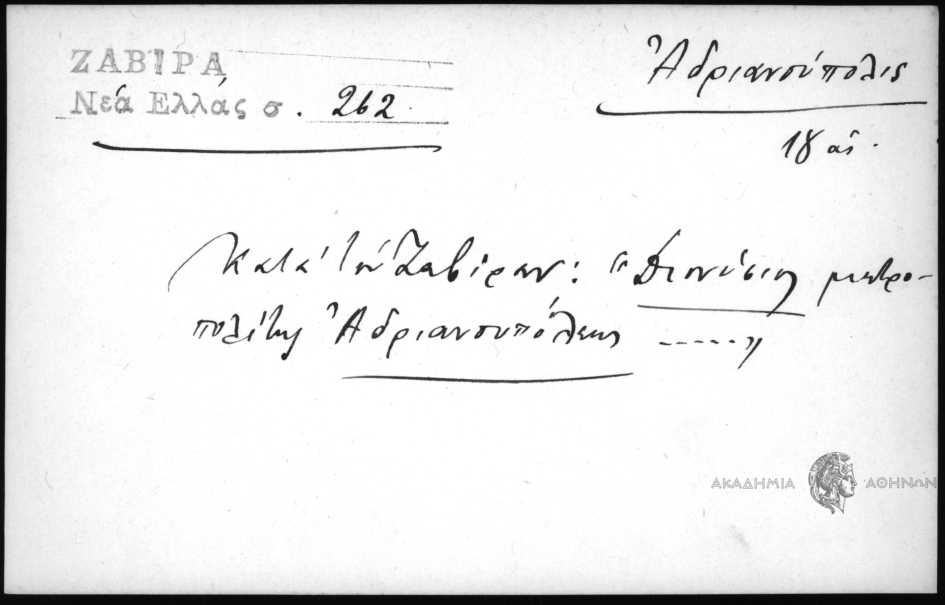 ΖΑΒΙΡΑ
Νεά Ελλάς σ. 262
Ἀδριανούπολις
18 αἰ.
Κατά τόν Ζαβίραν: "Διονύσιος μητρο-
πολίτης Ἀδριανουπόλεως ....."
ΑΚΑΔΗΜΙΑ ΑΘΗΝΩΝ